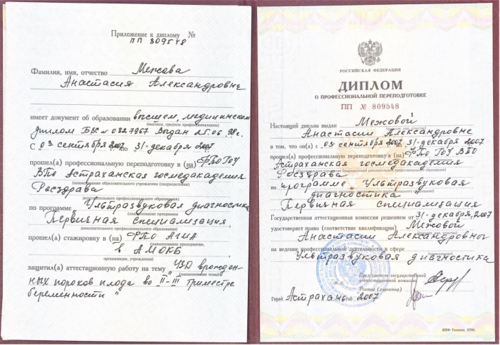 Приложение к диплому №
ПП 809548
Фамилия, имя, отчество Межова
Анастасия Александровна
имеет документ об образовании высшем, медицинском
диплом БВС № 0724967 Выдан 25.06.98г.
с 03 сентября 2007 31 декабря 2007
прошел(а) профессиональную переподготовку в (на) ФПО ГОУ
ВПО Астраханская госмедакадемия
Росздрава
по программе Ультразвуковая диагностика
Первичная специализация
прошел(а) стажировку в (на) ФПО АГМА
АМОКБ
защитил(а) аттестационную работу на тему "УЗД врожден-
ных пороков плода во II-III триместре
беременности"
РОССИЙСКАЯ ФЕДЕРАЦИЯ
ДИПЛОМ
О ПРОФЕССИОНАЛЬНОЙ ПЕРЕПОДГОТОВКЕ
ПП № 809548
Настоящий диплом выдан Межовой
Анастасии Александровне
в том, что он(а) с 03 сентября 2007 31 декабря 2007
прошел(а) профессиональную переподготовку в (на) ФПО ГОУ ВПО
Астраханская госмедакадемия
Росздрава
по программе Ультразвуковая
диагностика
Первичная специализация
Государственная аттестационная комиссия решением от 31 декабря 2007
удостоверяет право (соответствие квалификации) Межовой
Анастасии Александровны
на ведение профессиональной деятельности в сфере
Ультразвуковая диагностика
Город Астрахань 2007